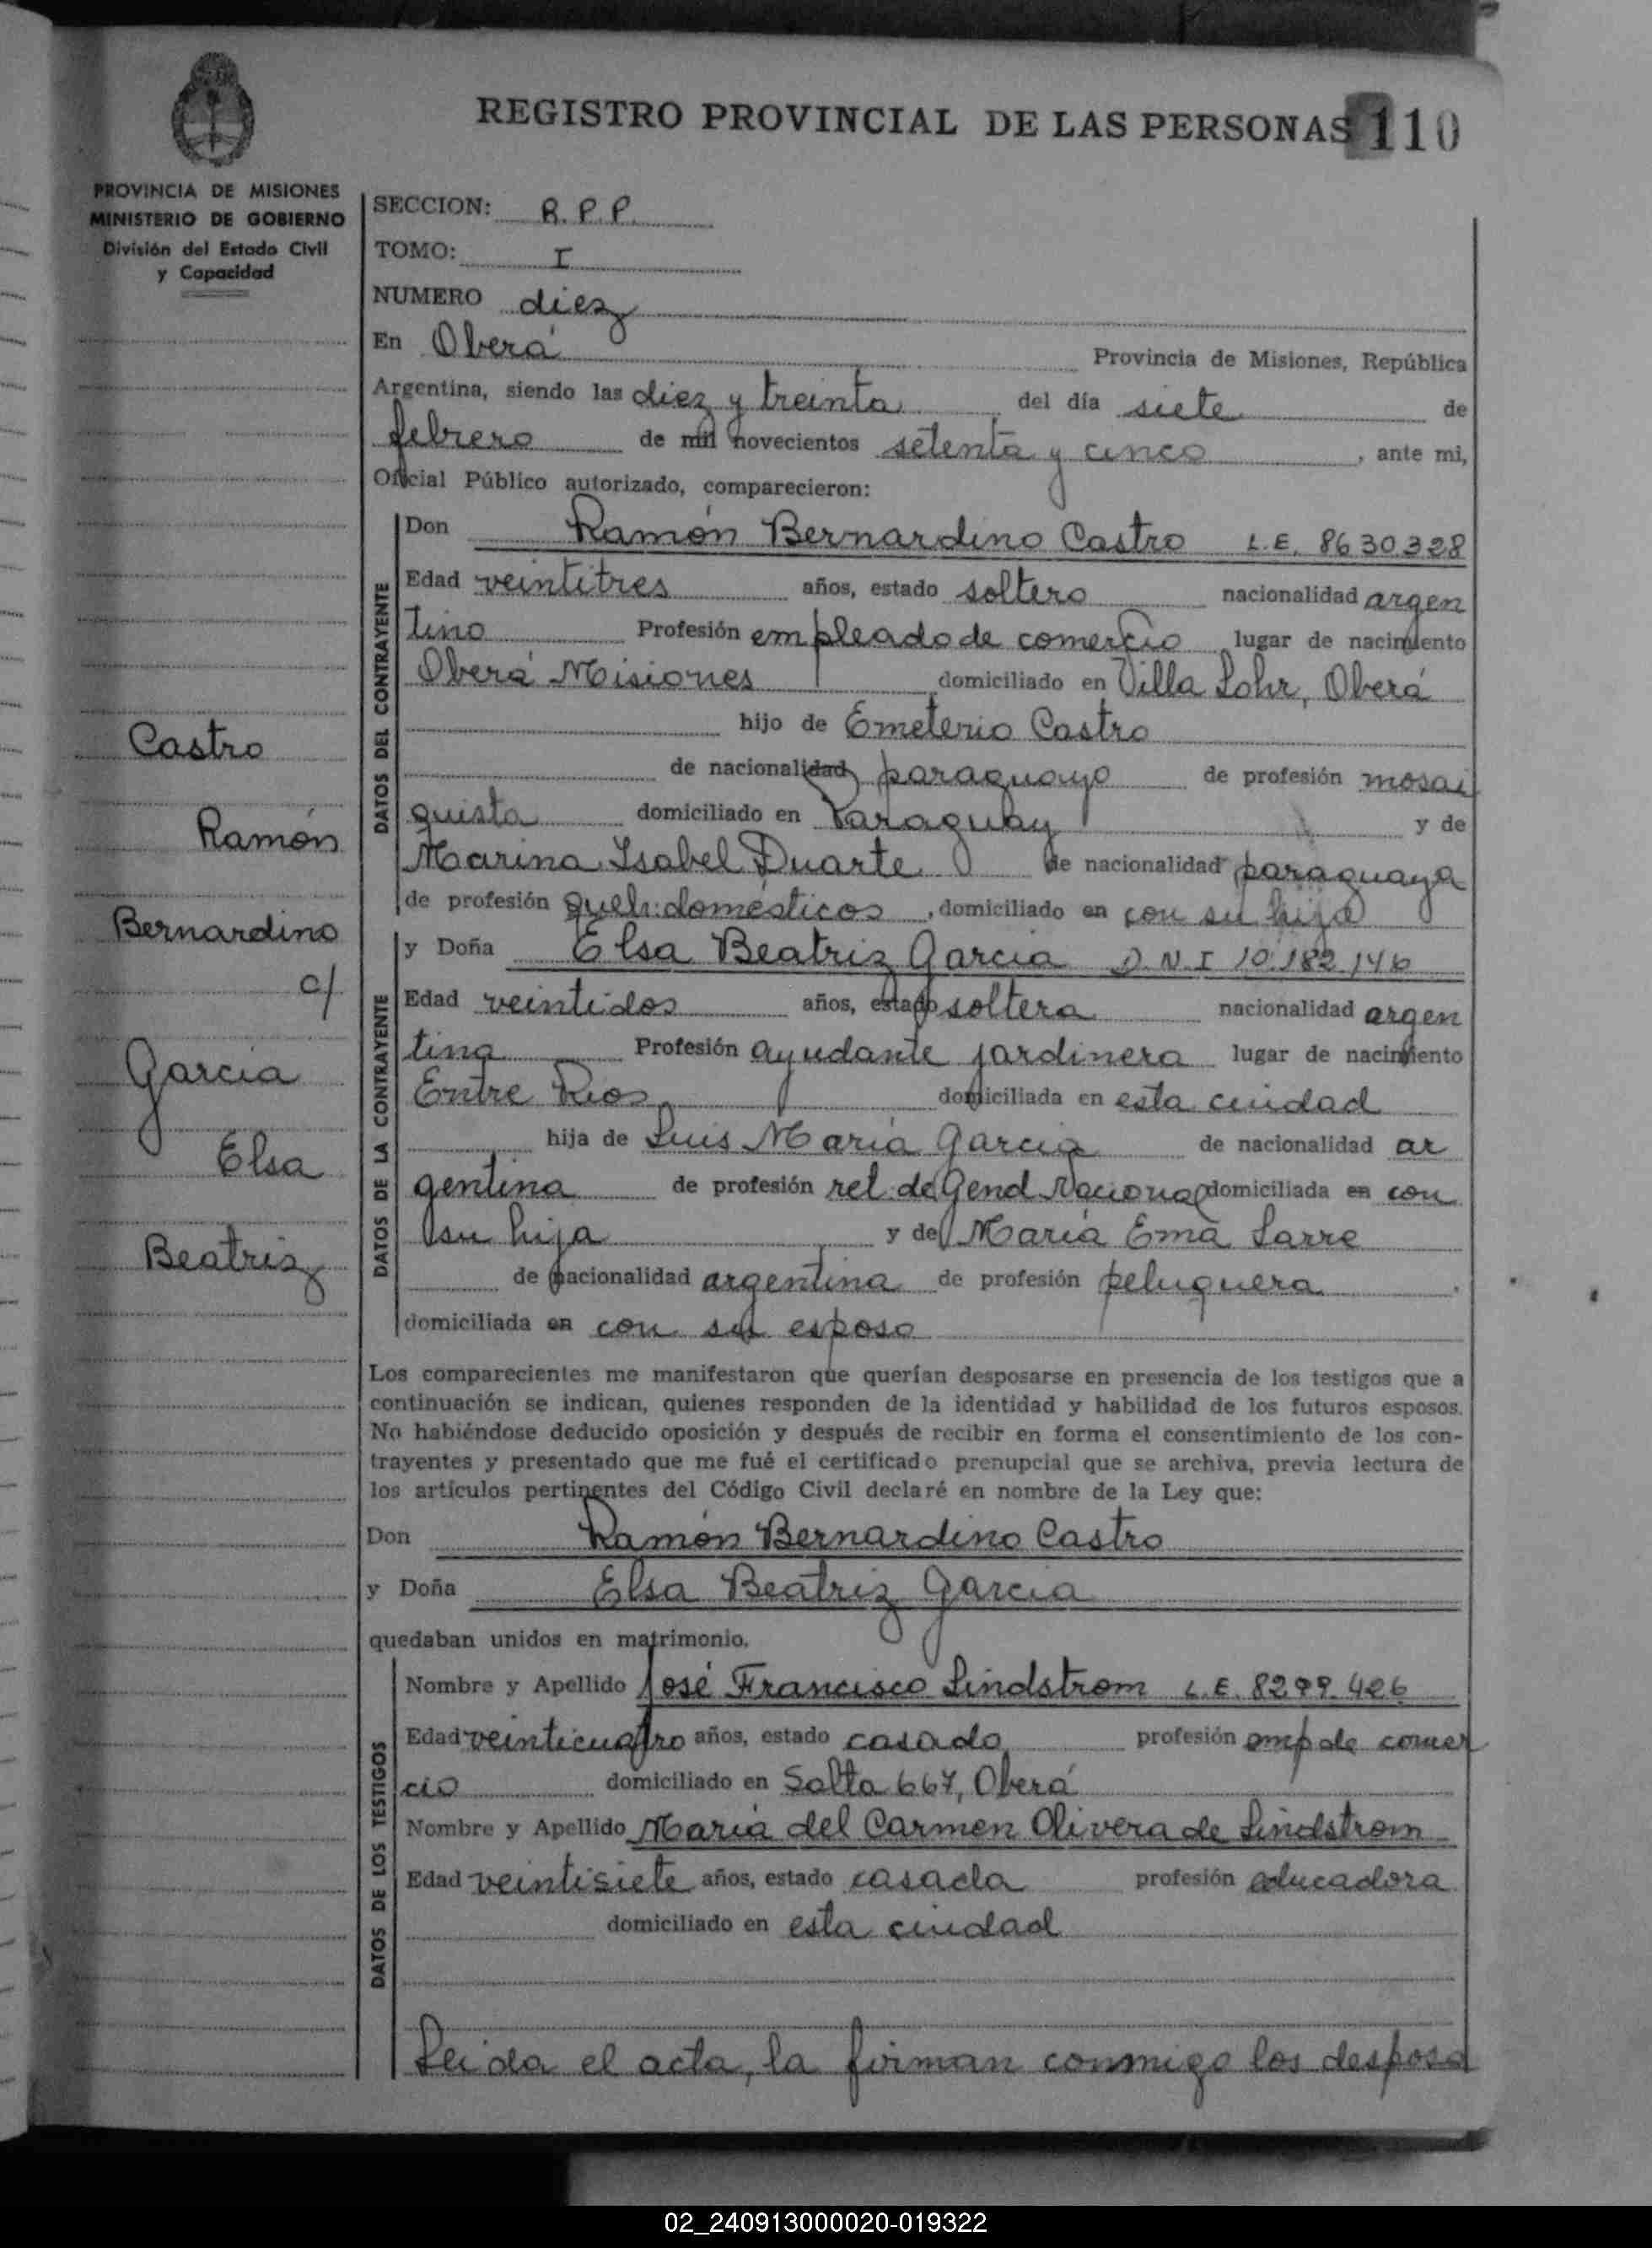 REGISTRO PROVINCIAL DE LAS PERSONAS 110
PROVINCIA DE MISIONES
MINISTERIO DE GOBIERNO
División del Estado Civil
y Capacidad
Castro
Ramón
Bernardino
c/
Garcia
Elsa
Beatriz
SECCION: R.P.P.
TOMO: I
NUMERO diez
En Oberá Provincia de Misiones, República
Argentina, siendo las diez y treinta del día siete de
febrero de mil novecientos setenta y cinco, ante mi,
Oficial Público autorizado, comparecieron:
DATOS DEL CONTRAYENTE
Don Ramón Bernardino Castro L.E. 8630328
Edad veintitres años, estado soltero nacionalidad argen
tino Profesión empleado de comercio lugar de nacimiento
Oberá Misiones domiciliado en Villa Lohr, Oberá
hijo de Emeterio Castro
de nacionalidad paraguayo de profesión mosai
quista domiciliado en Paraguay y de
Marina Isabel Duarte de nacionalidad paraguaya
de profesión queh. domésticos, domiciliado en con su hijo
DATOS DE LA CONTRAYENTE
y Doña Elsa Beatriz Garcia D.N.I 10.182.146
Edad veintidos años, estado soltera nacionalidad argen
tina Profesión ayudante jardinera lugar de nacimiento
Entre Rios domiciliada en esta ciudad
hija de Luis María Garcia de nacionalidad ar
gentina de profesión ret. de Gend Nacional domiciliada en con
su hija y de María Ema Sarre
de nacionalidad argentina de profesión peluquera.
domiciliada en con su esposo
Los comparecientes me manifestaron que querían desposarse en presencia de los testigos que a
continuación se indican, quienes responden de la identidad y habilidad de los futuros esposos.
No habiéndose deducido oposición y después de recibir en forma el consentimiento de los con-
trayentes y presentado que me fué el certificado prenupcial que se archiva, previa lectura de
los artículos pertinentes del Código Civil declaré en nombre de la Ley que:
Don Ramón Bernardino Castro
y Doña Elsa Beatriz Garcia
quedaban unidos en matrimonio.
DATOS DE LOS TESTIGOS
Nombre y Apellido José Francisco Lindstrom L.E. 8299.426
Edad veinticuatro años, estado casado profesión emp de comer
cio domiciliado en Salta 667, Oberá
Nombre y Apellido María del Carmen Olivera de Lindstrom
Edad veintisiete años, estado casada profesión educadora
domiciliado en esta ciudad
Leida el acta, la firman conmigo los desposa
02_240913000020-019322